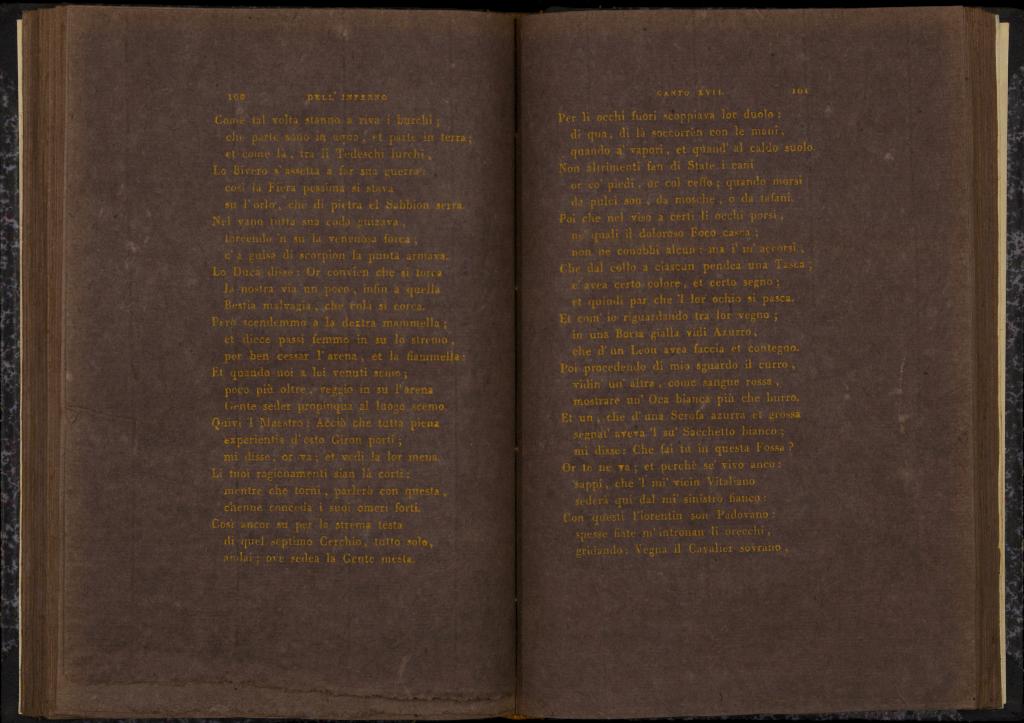 100 DELL' INFERNO
Come tal volta stanno a riva i burchi ;
che parte sono in acqua, et parte in terra ;
et come là, tra li Tedeschi lurchi,
Lo Bivero s' assetta a far sua guerra :
così la Fiera pessima si stava
su l' orlo, che di pietra el Sabbion serra.
Nel vano tutta sua coda guizava,
torcendo 'n su la venenosa forca ;
c' a guisa di scorpion la punta armava.
Lo Duca disse : Or convien che si torca
la nostra via un poco, infin a quella
Bestia malvagia, che colà si corca.
Però scendemmo a la dextra mammella ;
et diece passi femmo in su lo stremo,
per ben cessar l' arena, et la fiammella :
Et quando noi a lei venuti semo ;
poco più oltre, veggio in su l' arena
Gente seder propinqua al luogo scemo.
Quivi 'l Maestro : Acciò che tutta piena
experientia d' esto Giron porti ;
mi disse, or va ; et vedi la lor mena.
Li tuoi ragionamenti sian là corti :
mentre che torni, parlerò con questa,
chenne conceda i suoi omeri forti.
Così ancor su per la strema testa
di quel septimo Cerchio, tutto solo,
andai ; ove sedea la Gente mesta.
CANTO XVII. 101
Per li occhi fuori scoppiava lor duolo :
di qua, di là soccorrèn con le mani,
quando a' vapori, et quand' al caldo suolo.
Non altrimenti fan di State i cani
or co' piedi, or col ceffo ; quando morsi
da pulci son, da mosche, o da tafani.
Poi che nel viso a certi li occhi porsi,
ne' quali il doloroso Foco casca ;
non ne conobbi alcun : ma i' m' accorsi,
Che dal collo a ciascun pendea una Tasca ;
c' avea certo colore, et certo segno ;
et quindi par che 'l lor ochio si pasca.
Et com' io riguardando tra lor vegno ;
in una Borsa gialla vidi Azurro,
che d' un Leon avea faccia et contegno.
Poi procedendo di mio sguardo il curro,
vidin' un' altra, come sangue rossa,
mostrare un' Oca bianca più che burro.
Et un, che d' una Scrofa azurra et grossa
segnat' aveva 'l su' Sacchetto bianco ;
mi disse : Che fai tu in questa Fossa ?
Or te ne va ; et perchè se' vivo anco :
sappi, che 'l mi' vicin Vitaliano
sederà qui dal mi' sinistro fianco :
Con questi Fiorentin son Padovano :
spesse fiate m' intronan li orecchi,
gridando : Vegna il Cavalier sovrano,